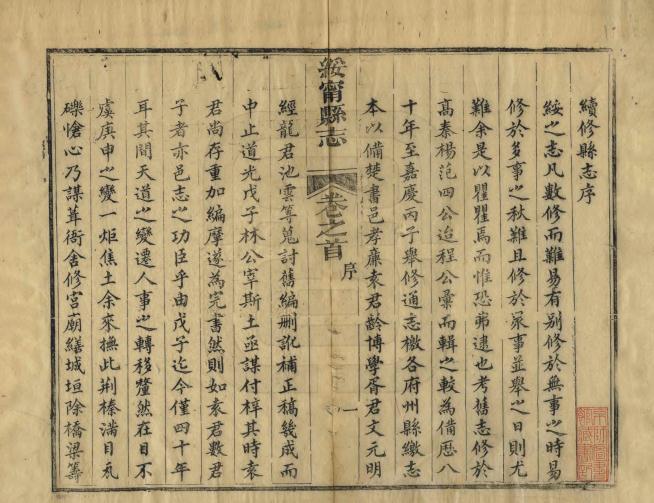 續修縣志序
綏之志凡數修而難易有別修於無事之時易
修於多事之秋難且修於衆事並舉之日則尤
難余是以瞿瞿焉而惟恐弗逮也考舊志修於
髙秦楊范四公迨程公彙而輯之較為備歴八
十年至嘉慶丙子舉修通志檄各府州縣繳志
本以備楚書邑孝廉袁君齡博學胥君文元明
綏甯縣志
卷之首
序
一
經龍君池雲等蒐討舊編删訛補正稿幾成而
中止道光戊子林公宰斯土亟謀付梓其時袁
君尚存重加編摩遂為完書然則如袁君數君
子者亦邑志之功臣乎由戊子迄今僅四十年
耳其間天道之變遷人事之轉移釐然在目不
虞庚申之變一炬焦土余來撫此荆榛滿目瓦
礫愴心乃謀葺衙舍修宫廟繕城垣除橋梁籌